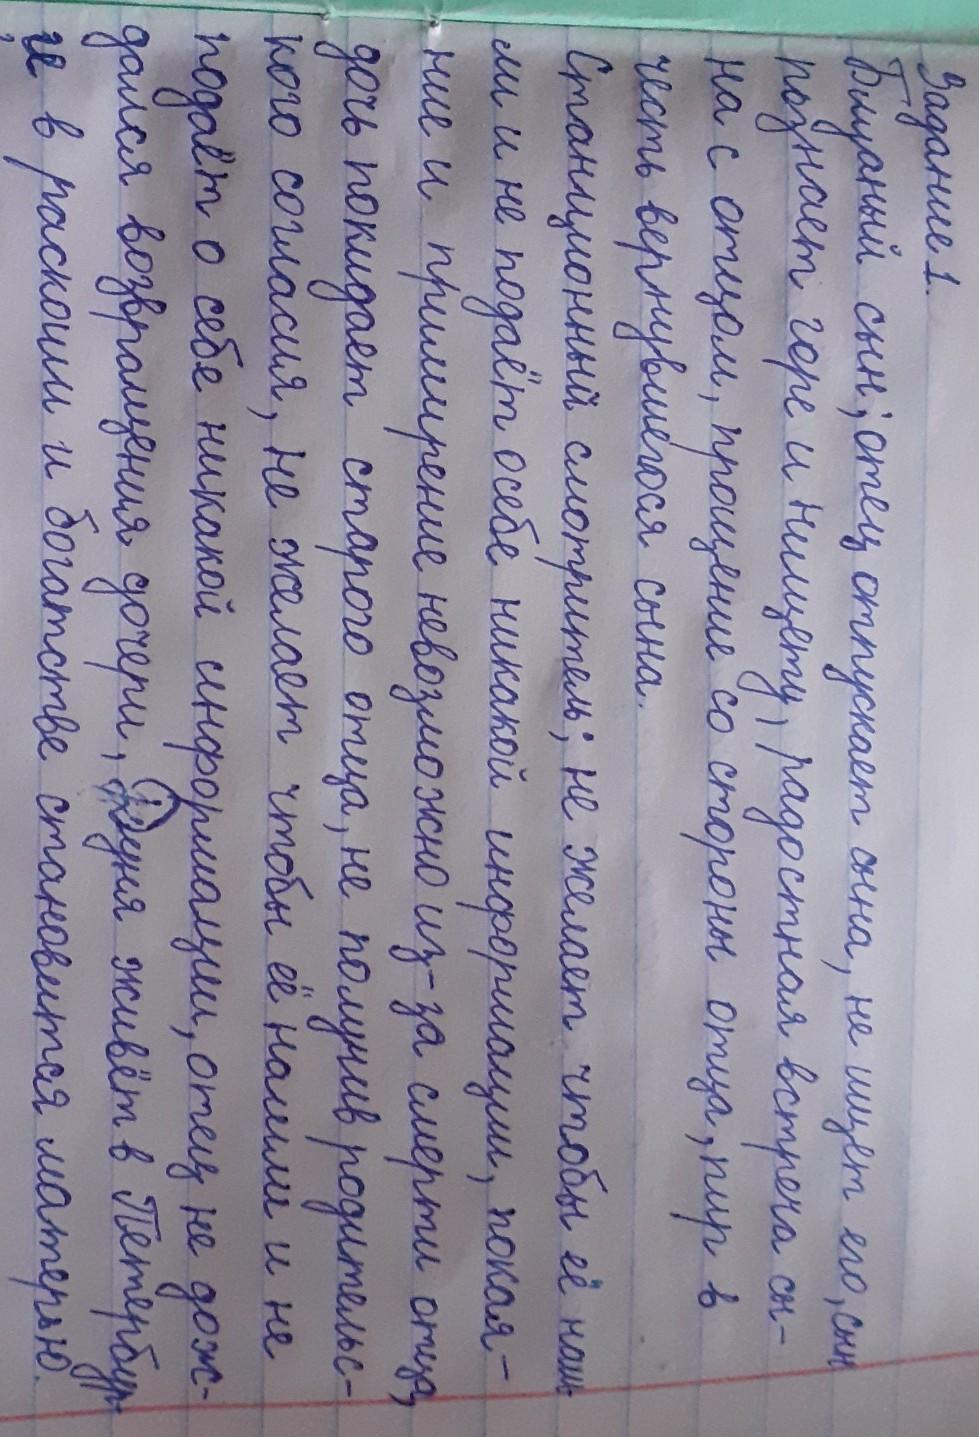 Задание 1.
Блудный сын; отец отпускает сына, не ищет его, сын
познает горе и нищету, радостная встреча сы-
на с отцом, прощение со стороны отца, пир в
честь вернувшегося сына.
Станционный смотритель; не желает, чтобы её наш
ли и не подаёт осебе никакой информации, покая-
ние и примирение невозможно из-за смерти отца,
дочь покидает старого отца, не получив родительс-
кого согласия, не желает чтобы её нашли и не
подаёт о себе никакой информации, отец не дож-
дался возвращения дочери, Дуня живёт в Петербур
ге в раскоши и богатстве становится матерью.